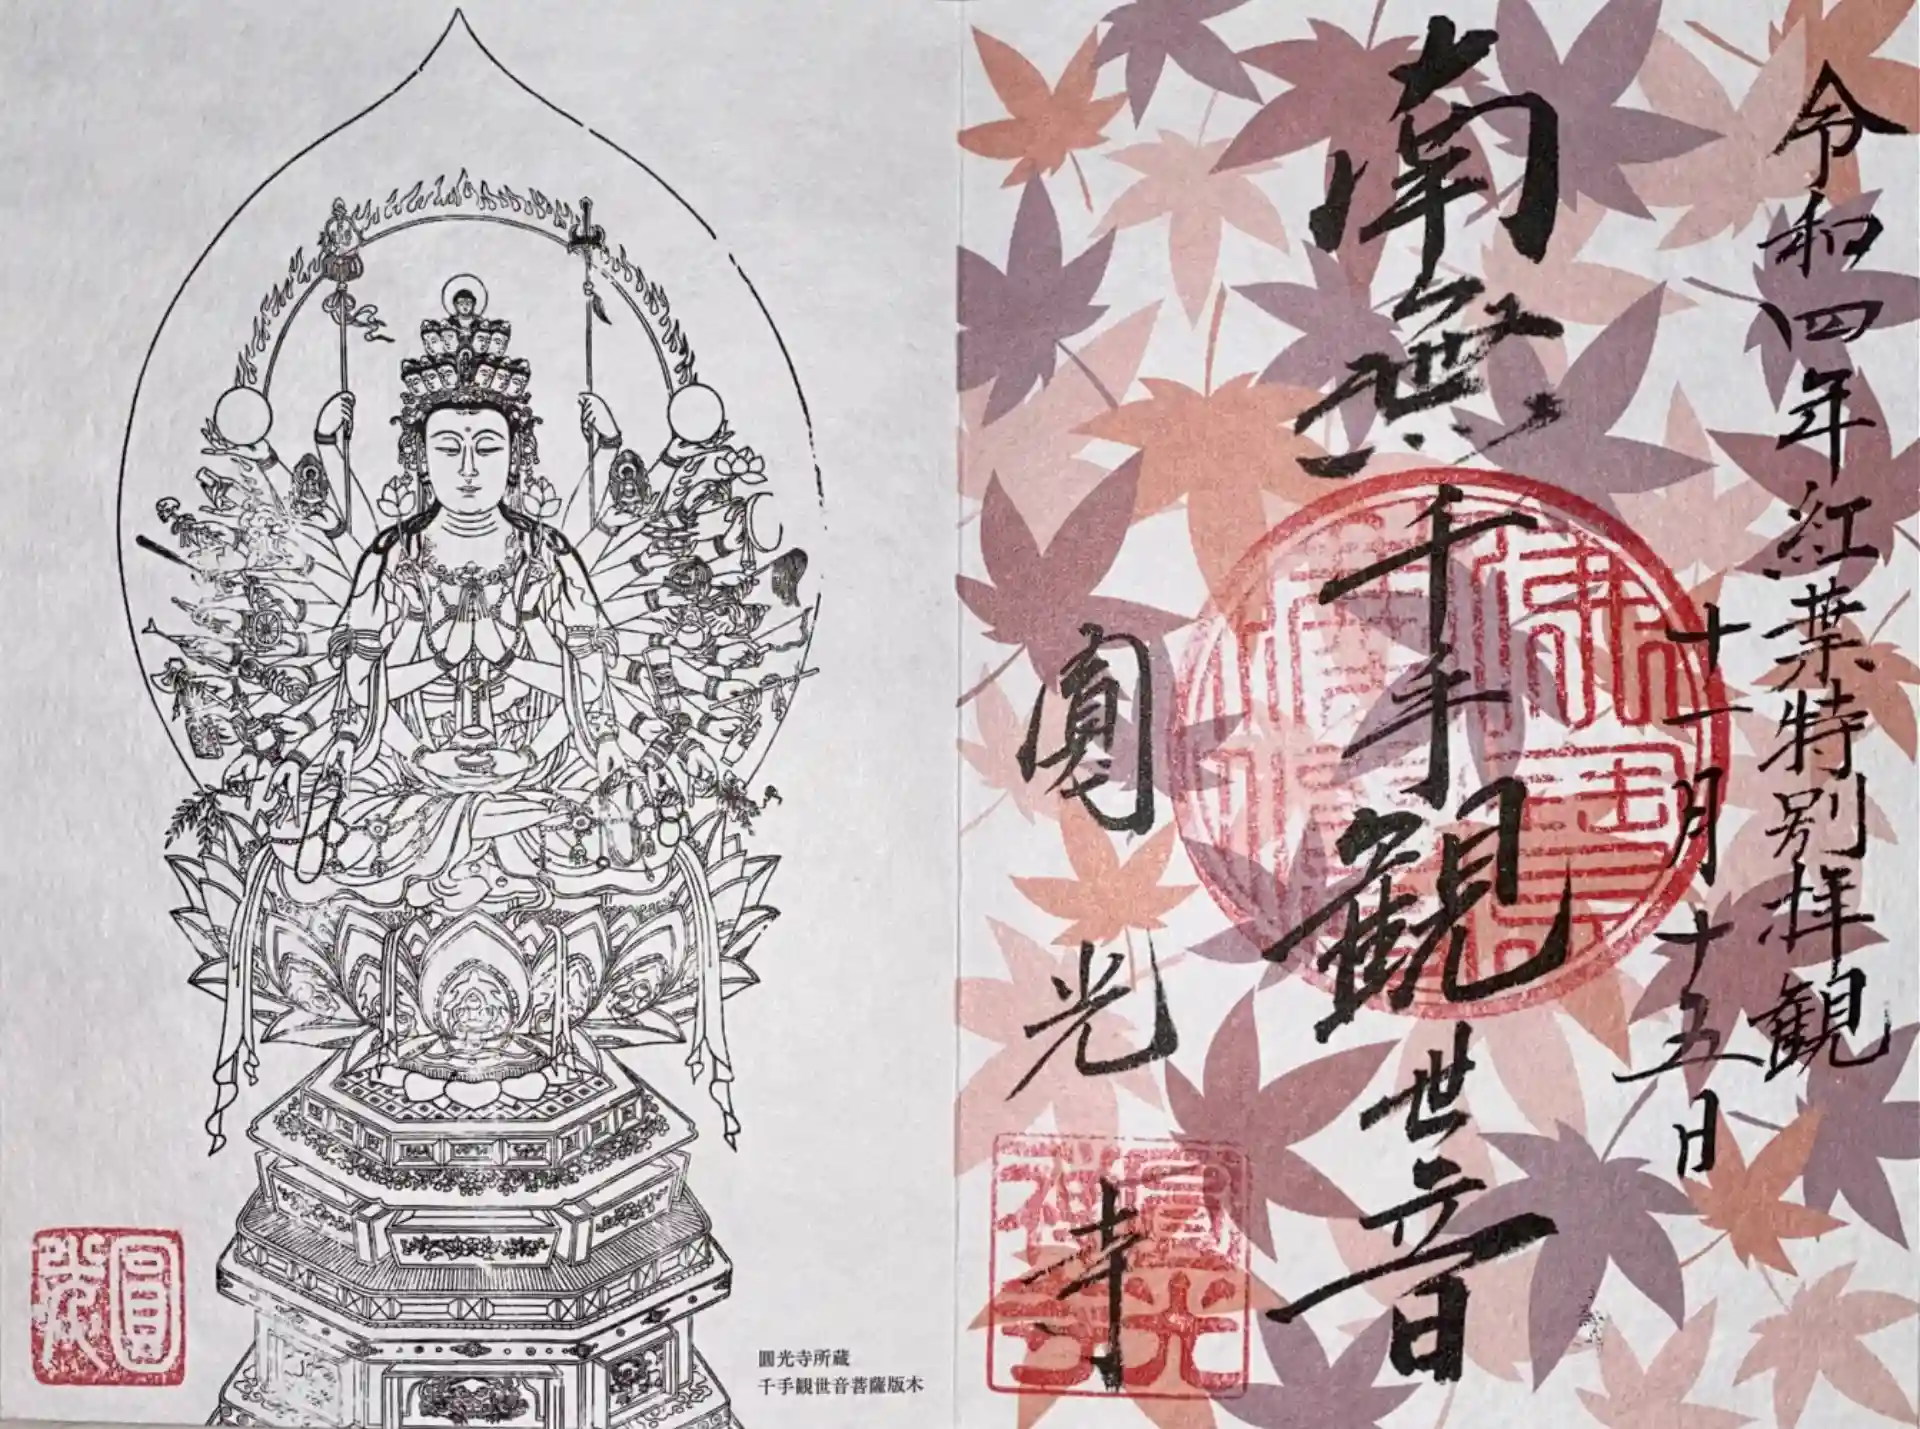 令和四年紅葉特別拝観
十一月十五日
南無千手観世音
圓光寺
圓光禅寺
圓光寺所蔵
千手観世音菩薩版木